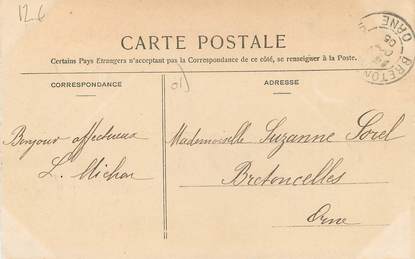 12.6
CARTE POSTALE
Certains Pays Étrangers n'acceptant pas la Correspondance de ce côté, se renseigner à la Poste.
CORRESPONDANCE
ADRESSE
Bonjour affectueux
L. Michon
Mademoiselle Suzanne Sorel
Bretoncelles
Orne
BRETON
ORNE
05